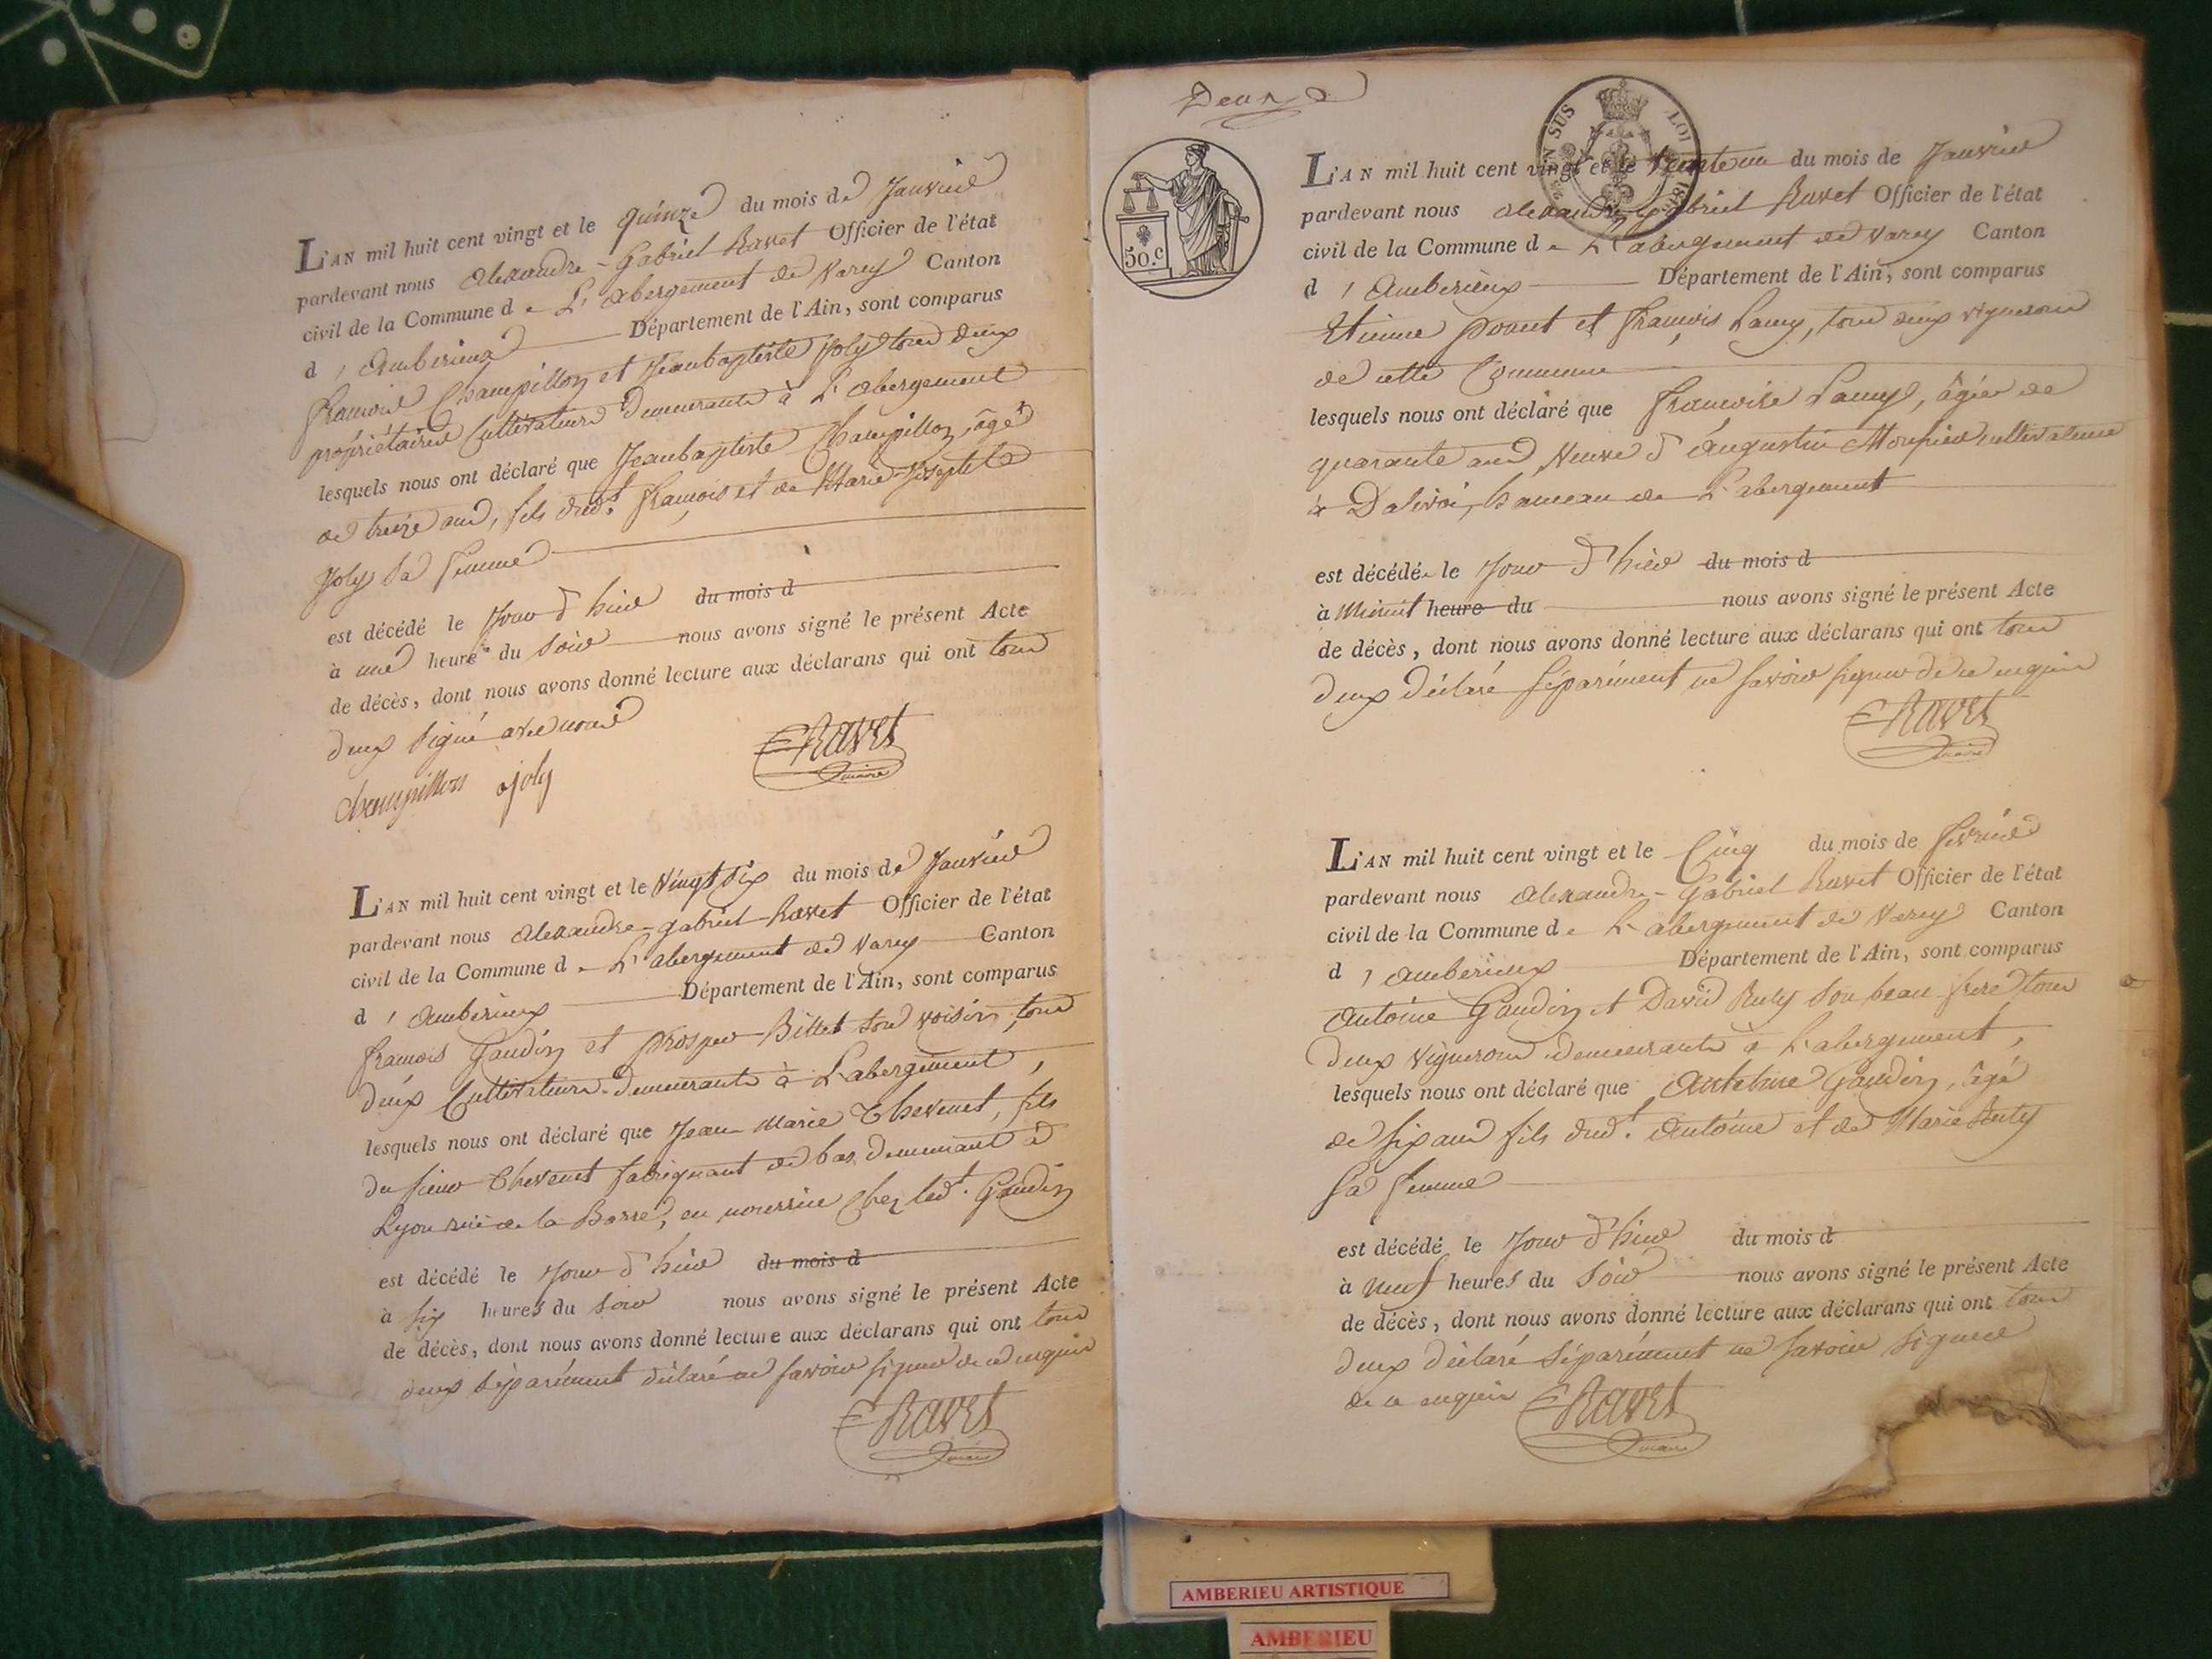 L'AN mil huit cent vingt et le quinze du mois de Janvier
pardevant nous Alexandre-Gabriel Ravet Officier de l'état
civil de la Commune de L'abergement de Varey Canton
d'Amberieux Département de l'Ain, sont comparus
François Champillon et Jeanbaptiste Joly tous deux
propriétaires Cultivateurs demeurants à L'abergement
lesquels nous ont déclaré que Jeanbaptiste Champillon, âgé
de treize ans, fils dud.t François et de Marie-Josephte
Joly sa femme
est décédé le Jour d'hier du mois d
à une heure du Soir nous avons signé le présent Acte
de décès, dont nous avons donné lecture aux déclarans qui ont tous
deux signé avec nous
Champillon Joly Ravet maire
L'AN mil huit cent vingt et le Vingt six du mois de Janvier
pardevant nous Alexandre-gabriel Ravet Officier de l'état
civil de la Commune de L'abergement de Varey Canton
d'Amberieux Département de l'Ain, sont comparus
François Gaudin et prosper Billet son voisin, tous
deux Cultivateurs demeurants à L'abergement,
lesquels nous ont déclaré que Jean-Marie Thevenet, fils
du sieur Thevenet fabriquant de bas demeurant à
Lyon rue de la Barre, en nourrice chez led.t Gaudin
est décédé le Jour d'hier du mois d
à six heures du soir nous avons signé le présent Acte
de décès, dont nous avons donné lecture aux déclarans qui ont tous
deux séparément déclaré ne savoir signer de ce enquis
Ravet maire
Deux
SUS LOI
50.c
L'AN mil huit cent vingt et le trente un du mois de Janvier
pardevant nous Alexandre-Gabriel Ravet Officier de l'état
civil de la Commune de L'abergement de Varey Canton
d'Amberieux Département de l'Ain, sont comparus
Etienne et François Lamy, tous deux vignerons
de cette Commune
lesquels nous ont déclaré que Francoise Lamy, âgée de
quarante ans Veuve d'Augustin cultivateur
à Dalivoi, hameau de L'abergement
est décédée le Jour d'hier du mois d
à Minuit heure du nous avons signé le présent Acte
de décès, dont nous avons donné lecture aux déclarans qui ont tous
deux déclaré séparément ne savoir signer de ce enquis
Ravet maire
L'AN mil huit cent vingt et le Cinq du mois de fevrier
pardevant nous Alexandre-Gabriel Ravet Officier de l'état
civil de la Commune de L'abergement de Varey Canton
d'Amberieux Département de l'Ain, sont comparus
Antoine Gaudin et David Ruty son beau frere tous
deux Vignerons demeurants à L'abergement,
lesquels nous ont déclaré que Anthelme Gaudin, âgé
de six ans fils dud.t Antoine et de Marie Ruty
sa femme
est décédé le Jour d'hier du mois d
à neuf heures du Soir nous avons signé le présent Acte
de décès, dont nous avons donné lecture aux déclarans qui ont tous
deux déclaré séparément ne savoir signer
de ce enquis Ravet maire
AMBERIEU ARTISTIQUE
AMBERIEU